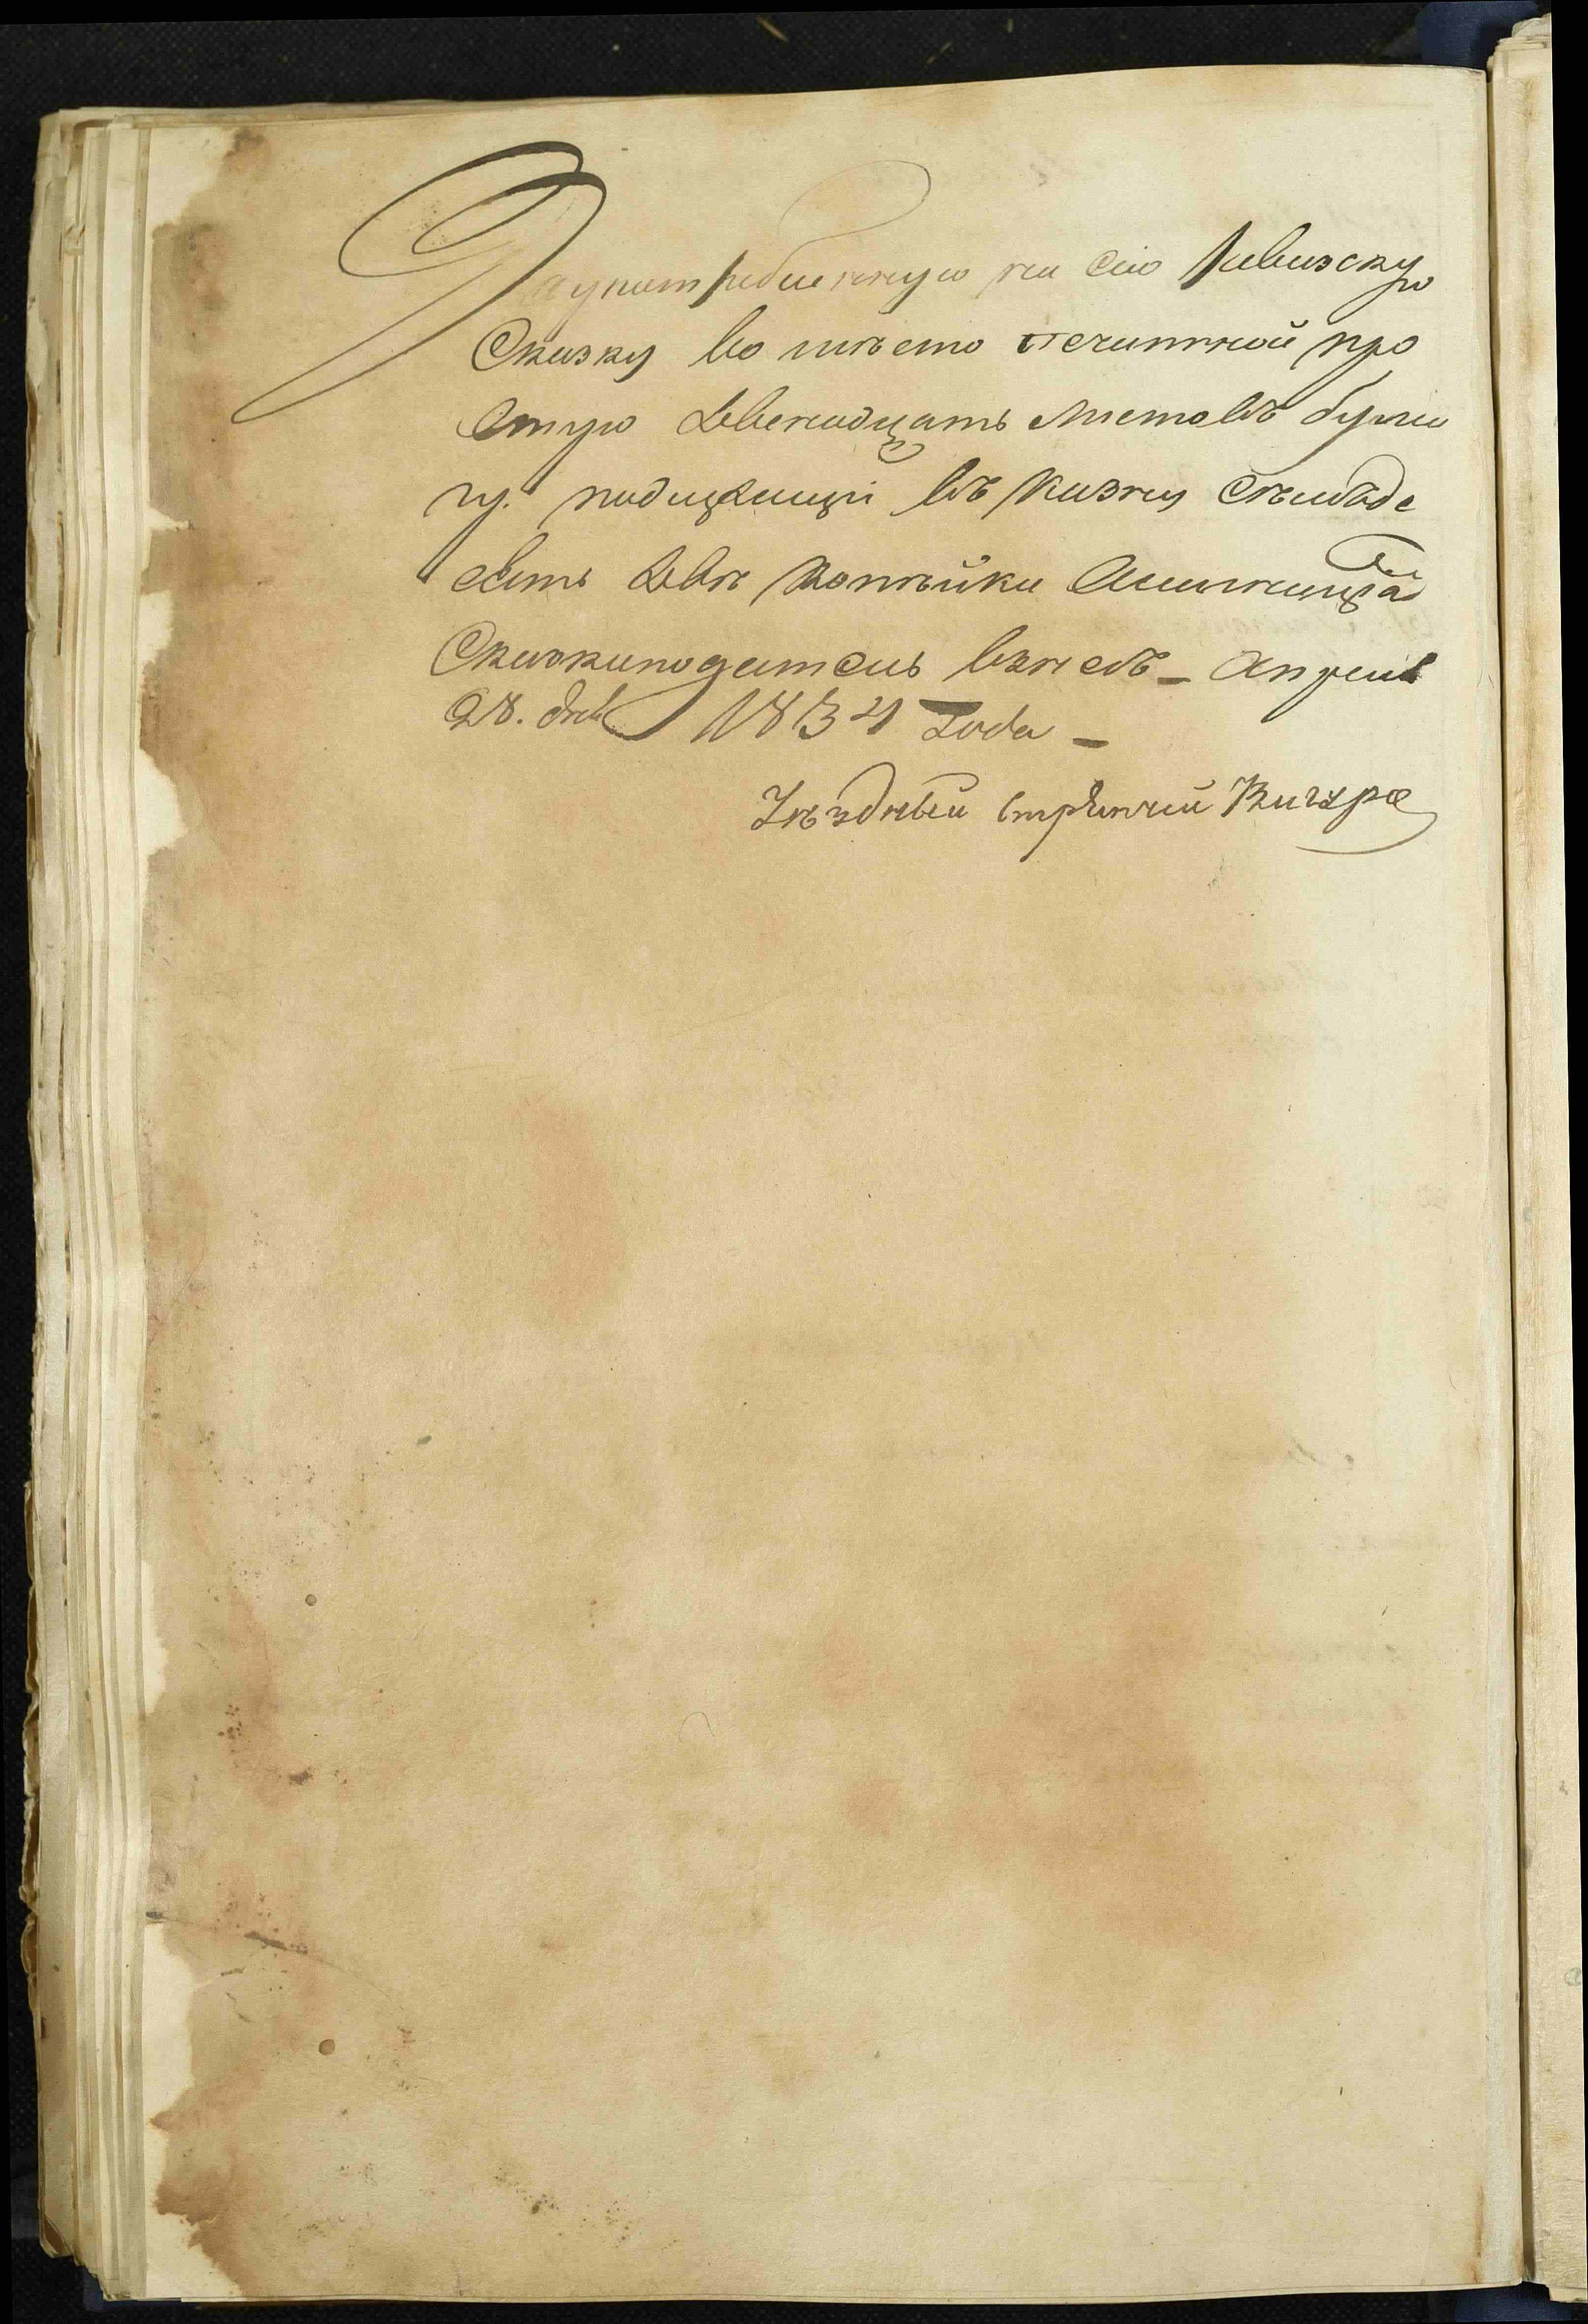 За употребленную на сію Ревизскую
Сказку во мѣсто печатной про
стую двенадцать листовъ бума
гу. подлежащіи въ казну семьде
сятъ двѣ копѣйки Ассигнаціями
Сказкиподатель взнесъ – Апреля
28. дня 1834 Года –
Уѣздный стряпчій